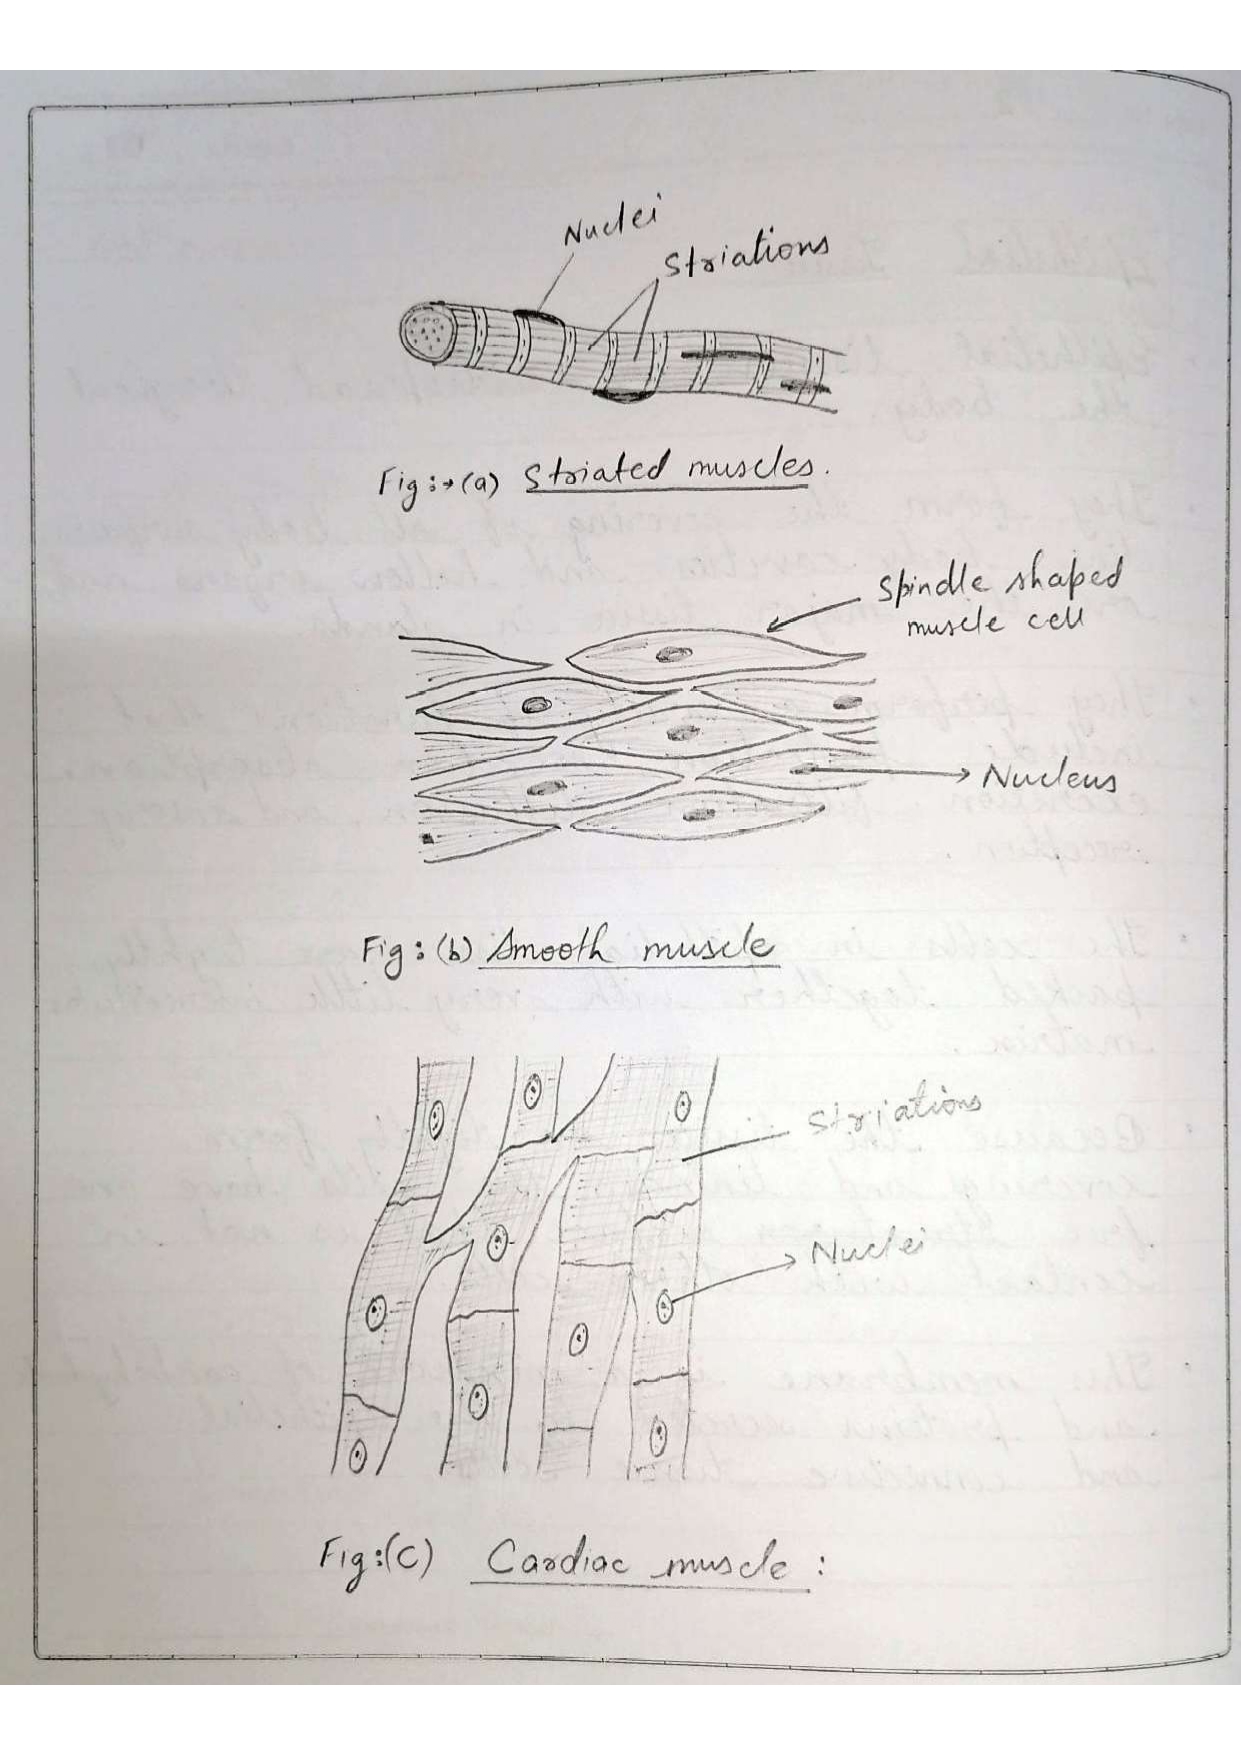 Nuclei
Striations
Fig:→(a) Striated muscles.
Spindle shaped
muscle cell
Nucleus
Fig:(b) Smooth muscle
Striations
Nuclei
Fig:(C) Cardiac muscle: